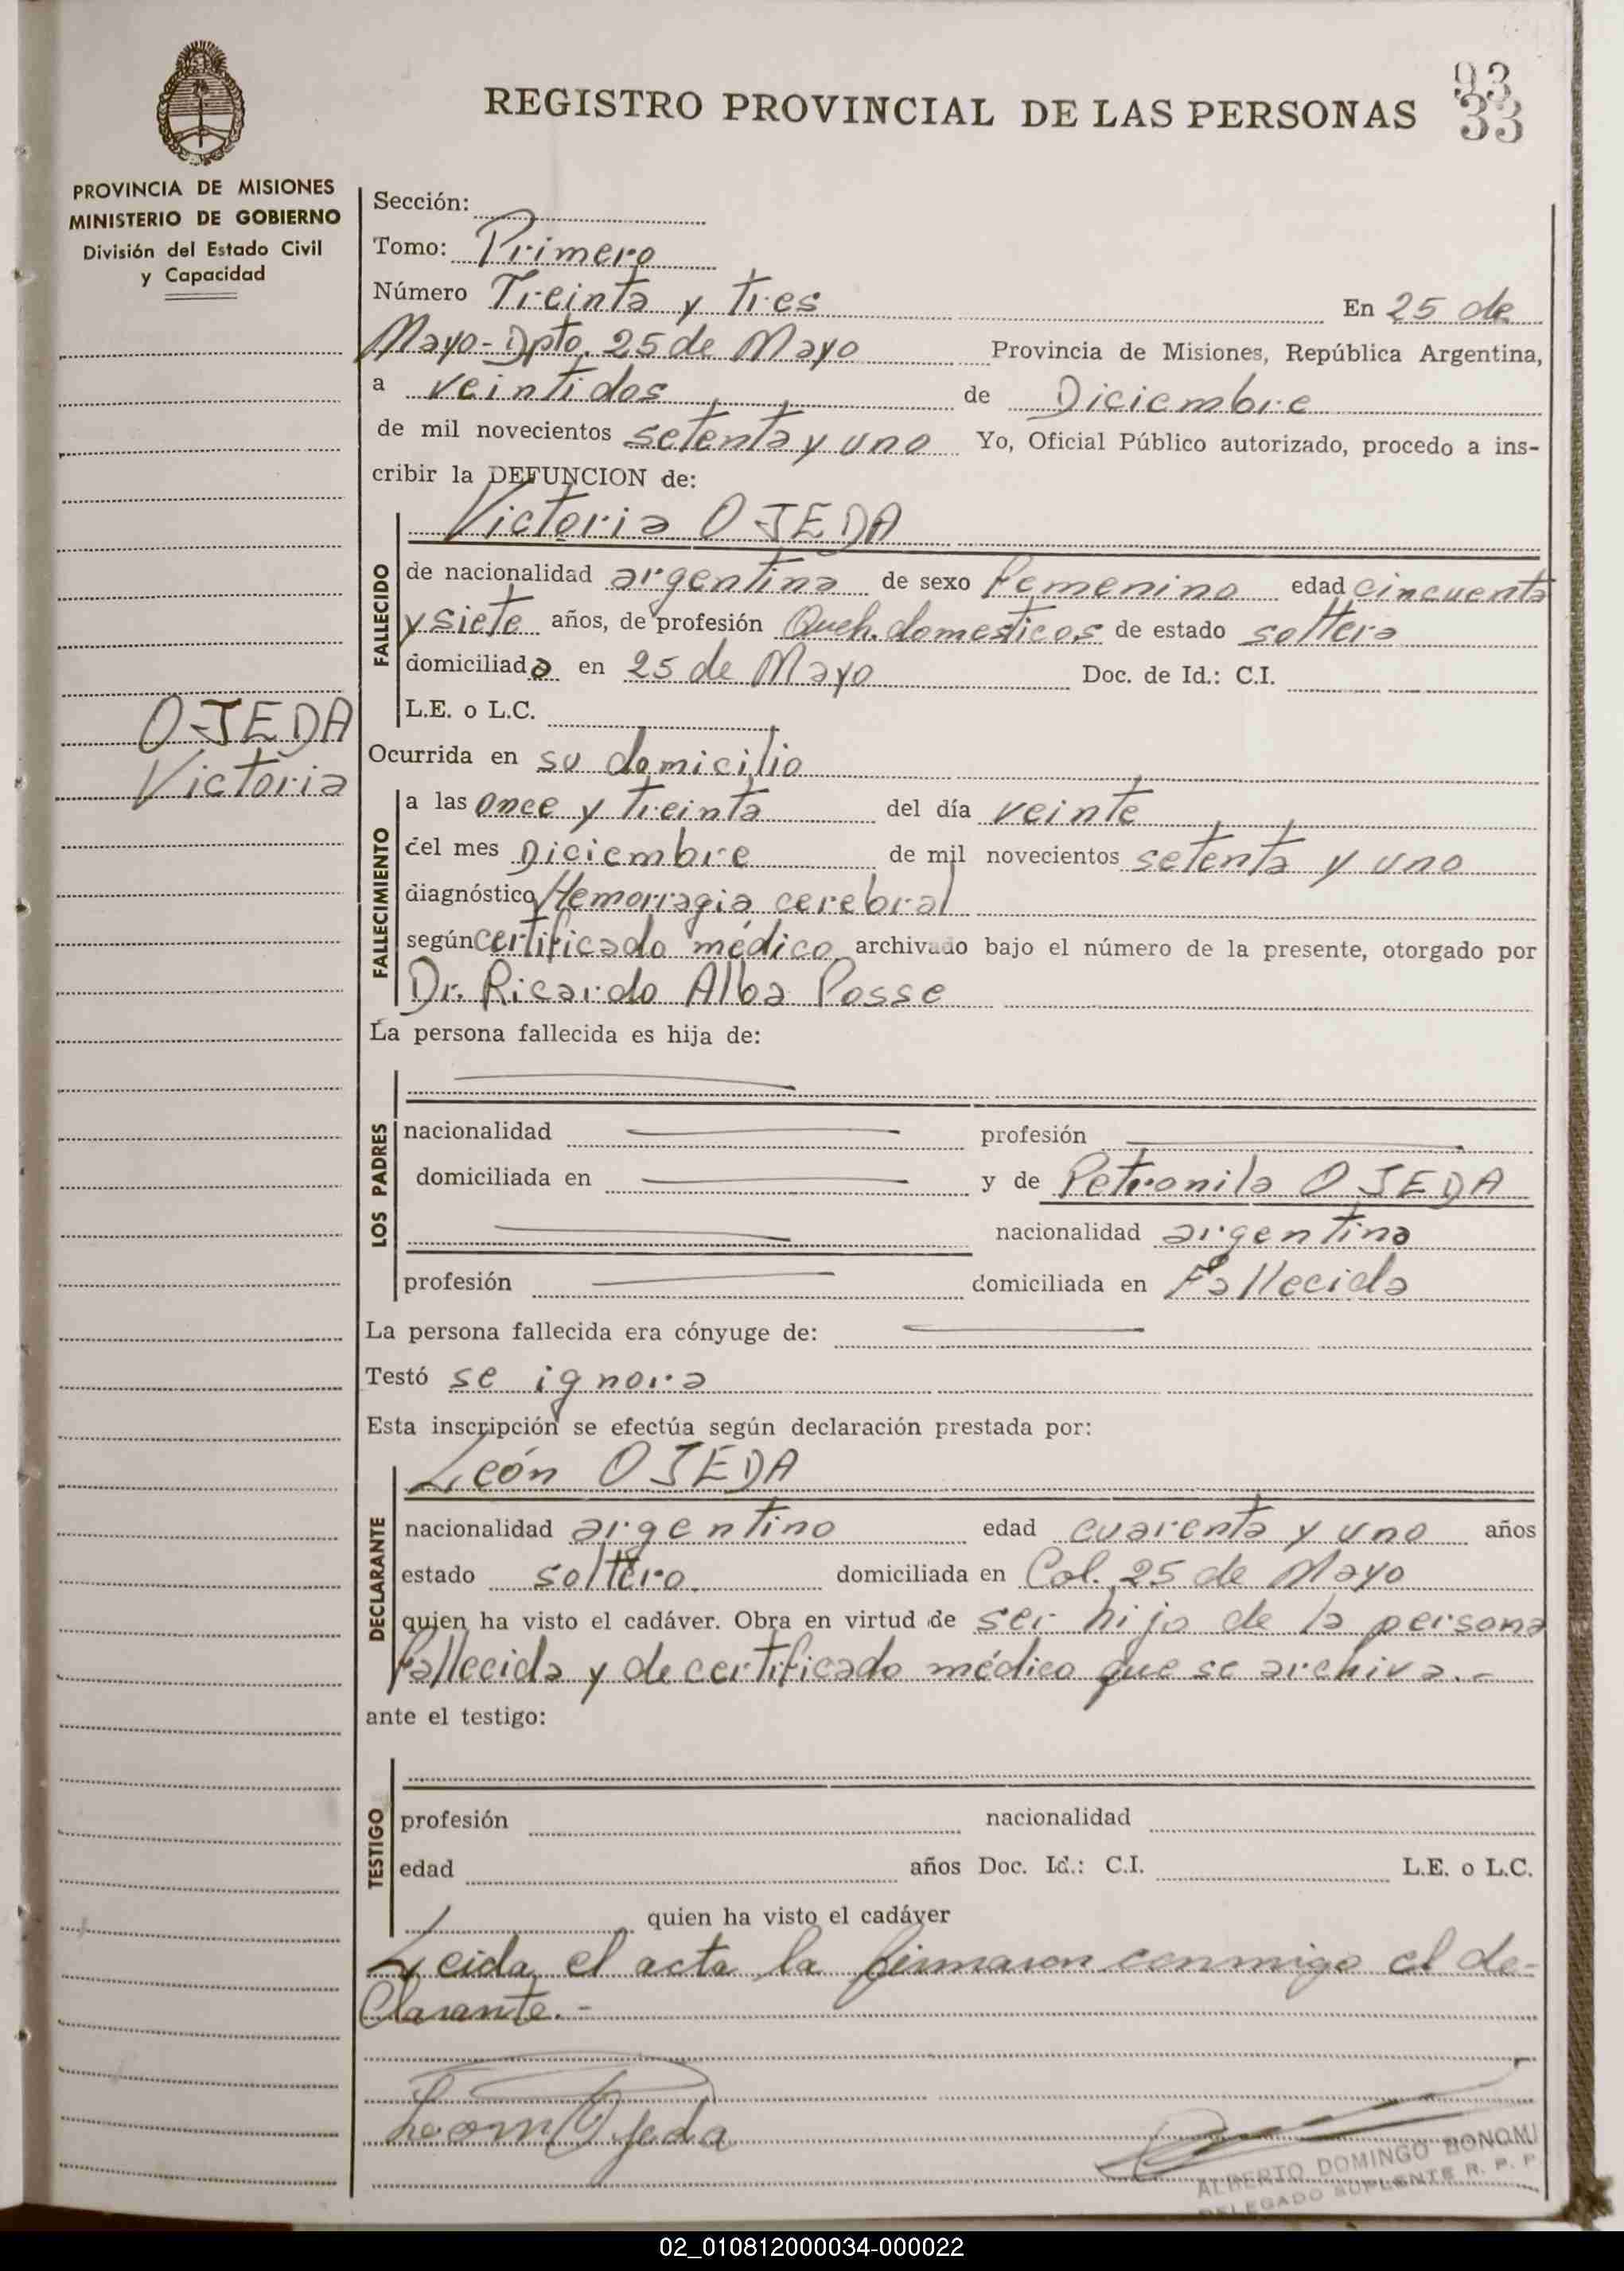 REGISTRO PROVINCIAL DE LAS PERSONAS
33
33
PROVINCIA DE MISIONES
MINISTERIO DE GOBIERNO
División del Estado Civil
y Capacidad
OJEDA
Victoria
Sección:
Tomo: Primero
Número Treinta y tres En 25 de
Mayo - Dpto. 25 de Mayo Provincia de Misiones, República Argentina,
a veintidos de Diciembre
de mil novecientos setenta y uno Yo, Oficial Público autorizado, procedo a ins-
cribir la DEFUNCION de:
Victoria OJEDA
FALLECIDO
de nacionalidad argentina de sexo femenino edad cincuenta
y siete años, de profesión Queh. domesticos de estado soltera
domiciliada en 25 de Mayo Doc. de Id.: C.I.
L.E. o L.C.
Ocurrida en su domicilio
FALLECIMIENTO
a las once y treinta del día veinte
del mes Diciembre de mil novecientos setenta y uno
diagnóstico Hemorragia cerebral
según certificado médico archivado bajo el número de la presente, otorgado por
Dr. Ricardo Alba Posse
La persona fallecida es hija de:
LOS PADRES
nacionalidad profesión
domiciliada en y de Petronila OJEDA
nacionalidad argentina
profesión domiciliada en Fallecida
La persona fallecida era cónyuge de:
Testó se ignora
Esta inscripción se efectúa según declaración prestada por:
León OJEDA
DECLARANTE
nacionalidad argentino edad cuarenta y uno años
estado soltero. domiciliada en Col. 25 de Mayo
quien ha visto el cadáver. Obra en virtud de ser hijo de la persona
fallecida y de certificado médico que se archiva.-
ante el testigo:
TESTIGO
profesión nacionalidad
edad años Doc. Id.: C.I. L.E. o L.C.
quien ha visto el cadáver
Leida el acta la firmaron conmigo el de-
clarante.-
Leon Ojeda
ALBERTO DOMINGO BONOMI
DELEGADO SUPLENTE R. P. P.
02_010812000034-000022